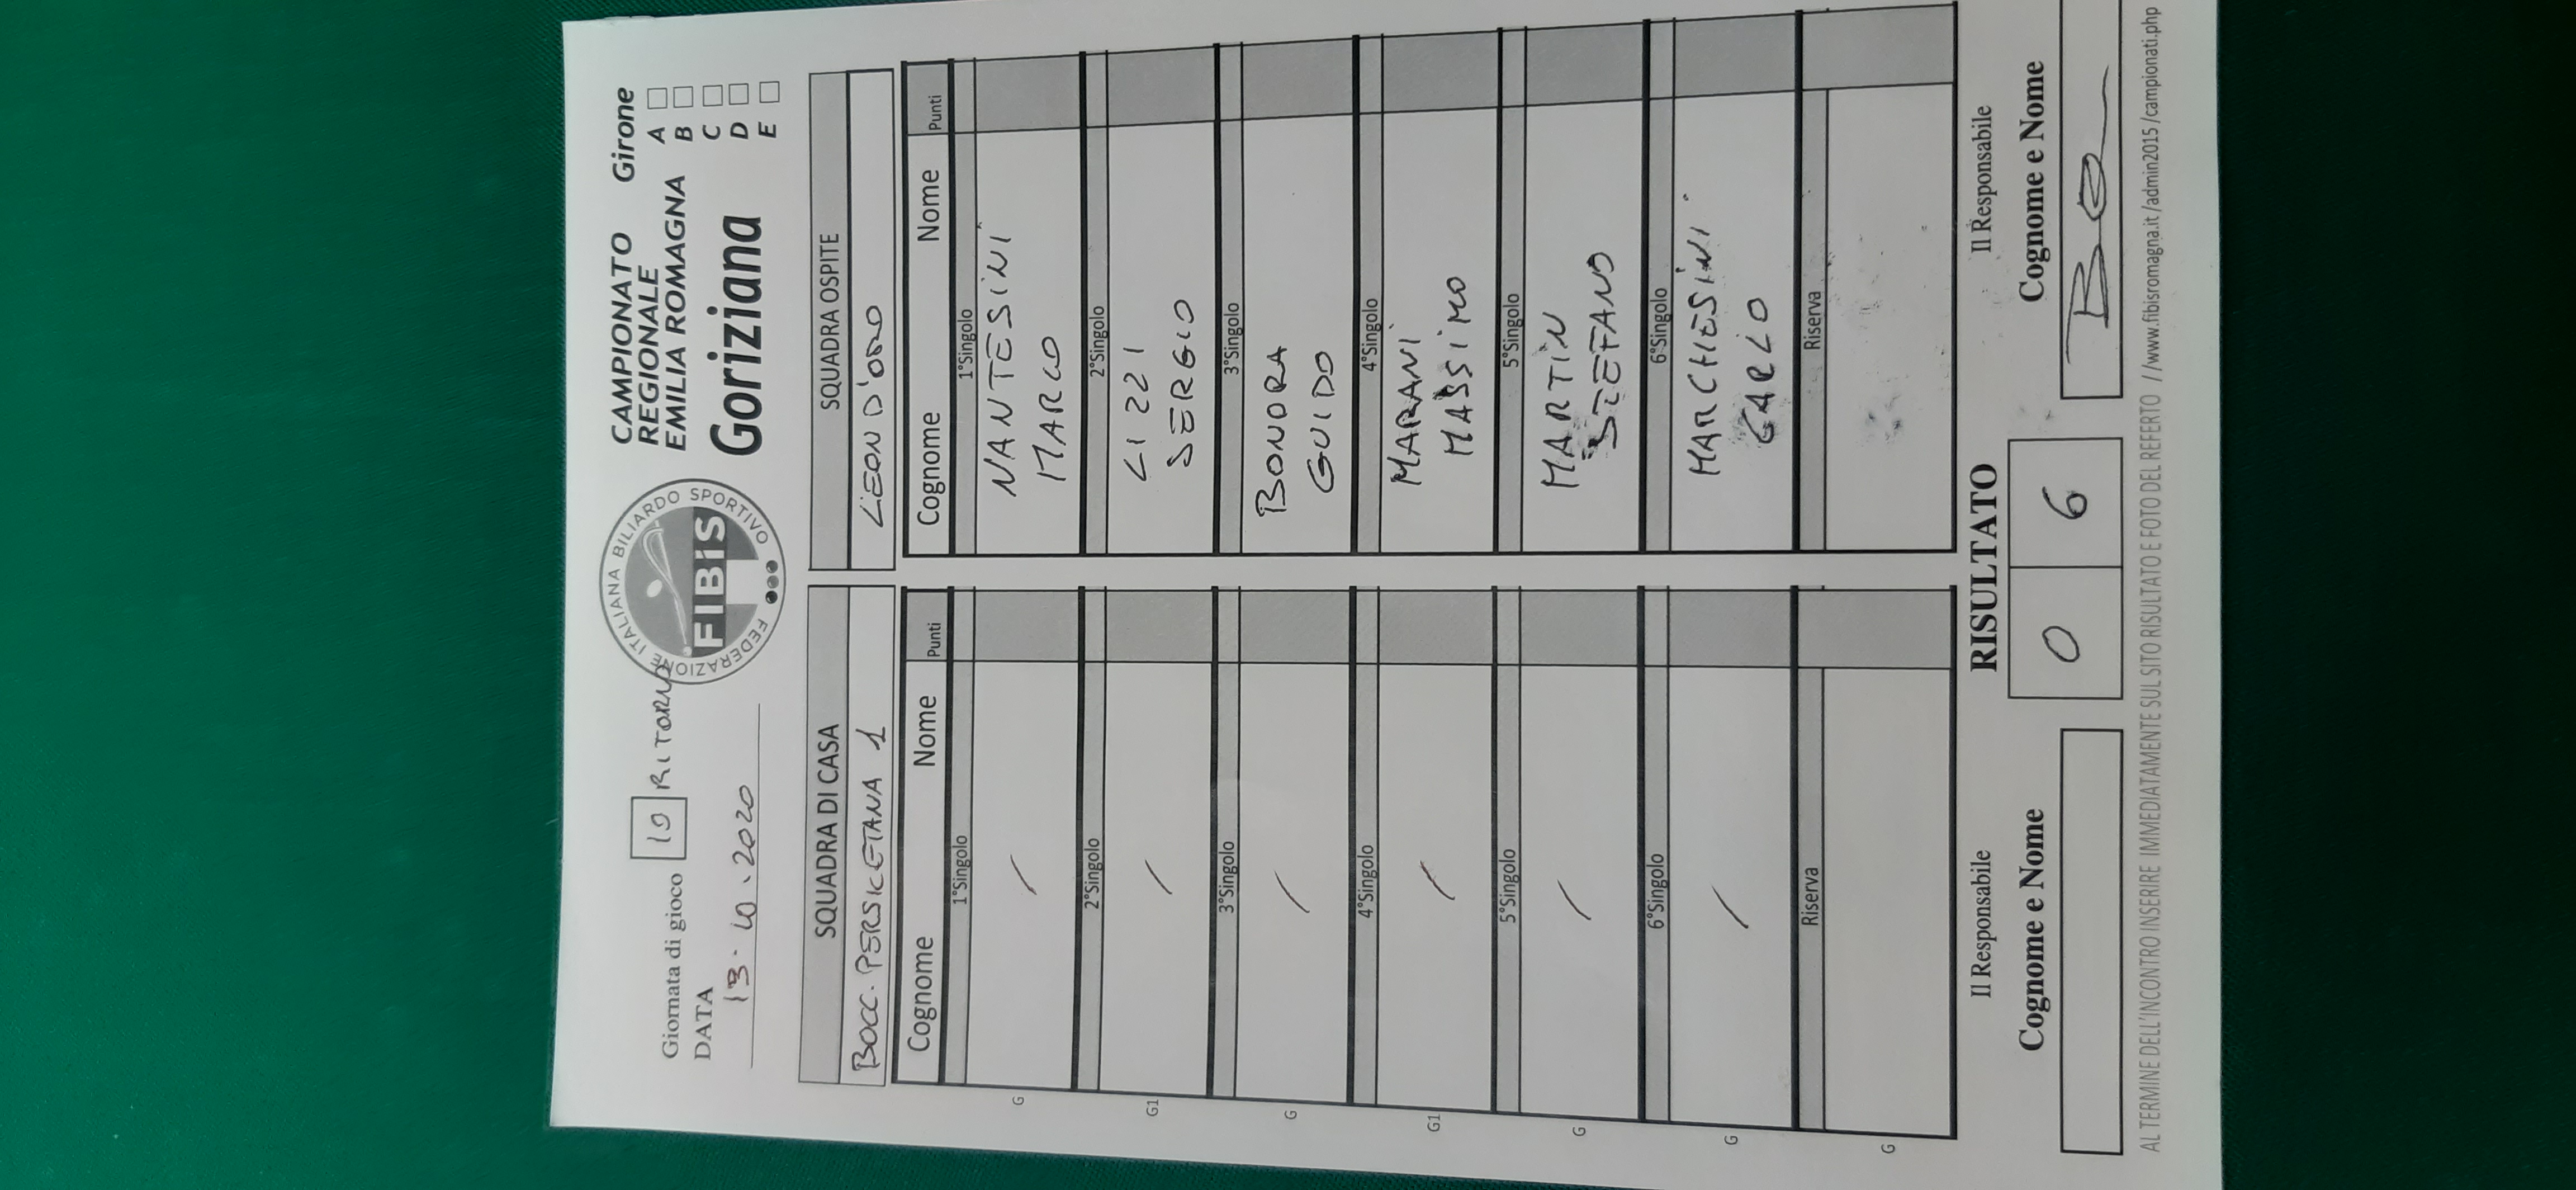 Giornata di gioco 10 RITORNO
DATA
13.10.2020
FEDERAZIONE ITALIANA BILIARDO SPORTIVO
FIBiS
CAMPIONATO
REGIONALE
EMILIA ROMAGNA
Goriziana
Girone
A
B
C
D
E
SQUADRA DI CASA
BOCC. PERSICETANA 1
Cognome Nome Punti
1°Singolo
/
2°Singolo
/
3°Singolo
/
4°Singolo
/
5°Singolo
/
6°Singolo
/
Riserva
G
G1
G
G1
G
G
G
SQUADRA OSPITE
LEON D'ORO
Cognome Nome Punti
1°Singolo
NANTESINI
MARCO
2°Singolo
LIZZI
SERGIO
3°Singolo
BONORA
GUIDO
4°Singolo
MARANI
MASSIMO
5°Singolo
MARTIN
STEFANO
6°Singolo
MARCHESINI
CARLO
Riserva
Il Responsabile
Cognome e Nome
RISULTATO
0 6
Il Responsabile
Cognome e Nome
AL TERMINE DELL'INCONTRO INSERIRE IMMEDIATAMENTE SUL SITO RISULTATO E FOTO DEL REFERTO //www.fibisromagna.it/admin2015/campionati.php